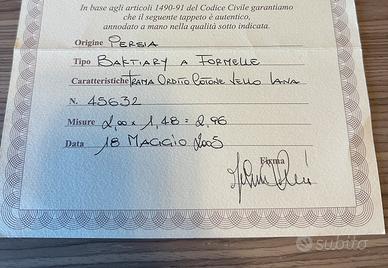 In base agli articoli 1490-91 del Codice Civile garantiamo
che il seguente tappeto è autentico,
annodato a mano nella qualità sotto indicata.
Origine PERSIA
Tipo BAKTIARY A FORMELLE
Caratteristiche TRAMA ORDITO COTONE VELLO LANA
N. 45632
Misure 2,00 x 1,48 = 2,96
Data 18 MAGGIO 2005
Firma
subito